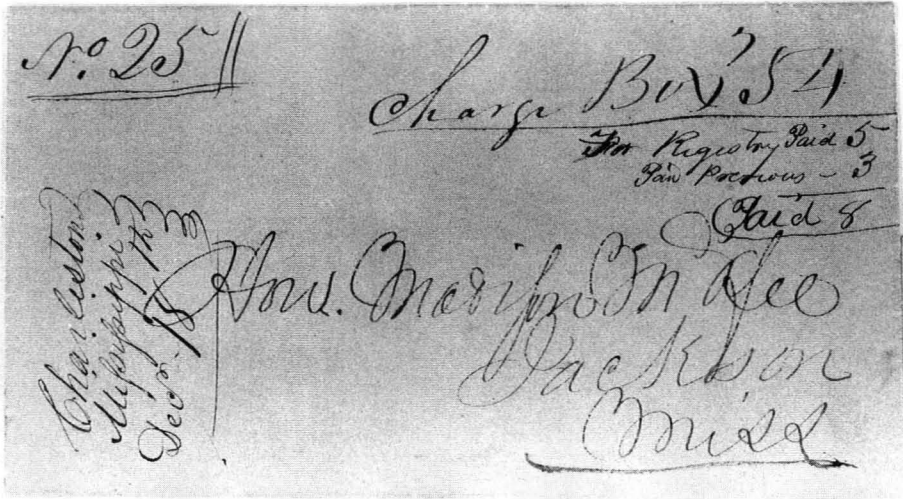 No. 25
Charge Box 54
For Registry Paid 5
Paid Previous - 3
Paid 8
Charleston
Missisippi
Dec. 18
Hon. Madison McAfee
Jackson
Miss